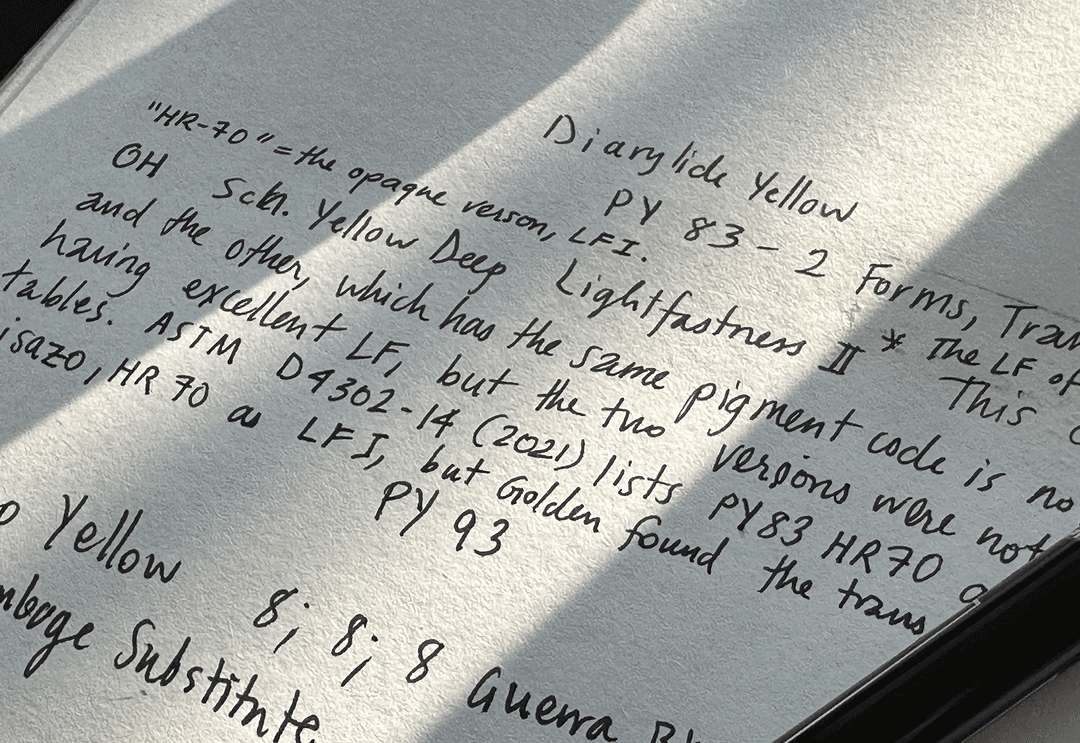 Diarylide Yellow
PY 83 - 2 Forms, Tran
"HR-70" = the opaque verson, LFI.
OH Sch. Yellow Deep Lightfastness II * The LF of
This
and the other, which has the same pigment code is no
having excellent LF, but the two versions were not
tables. ASTM D4302-14 (2021) lists PY83 HR70
isazo, HR 70 as LFI, but Golden found the trans
PY 93
o Yellow 8; 8; 8 Guerra
mboge Substitute